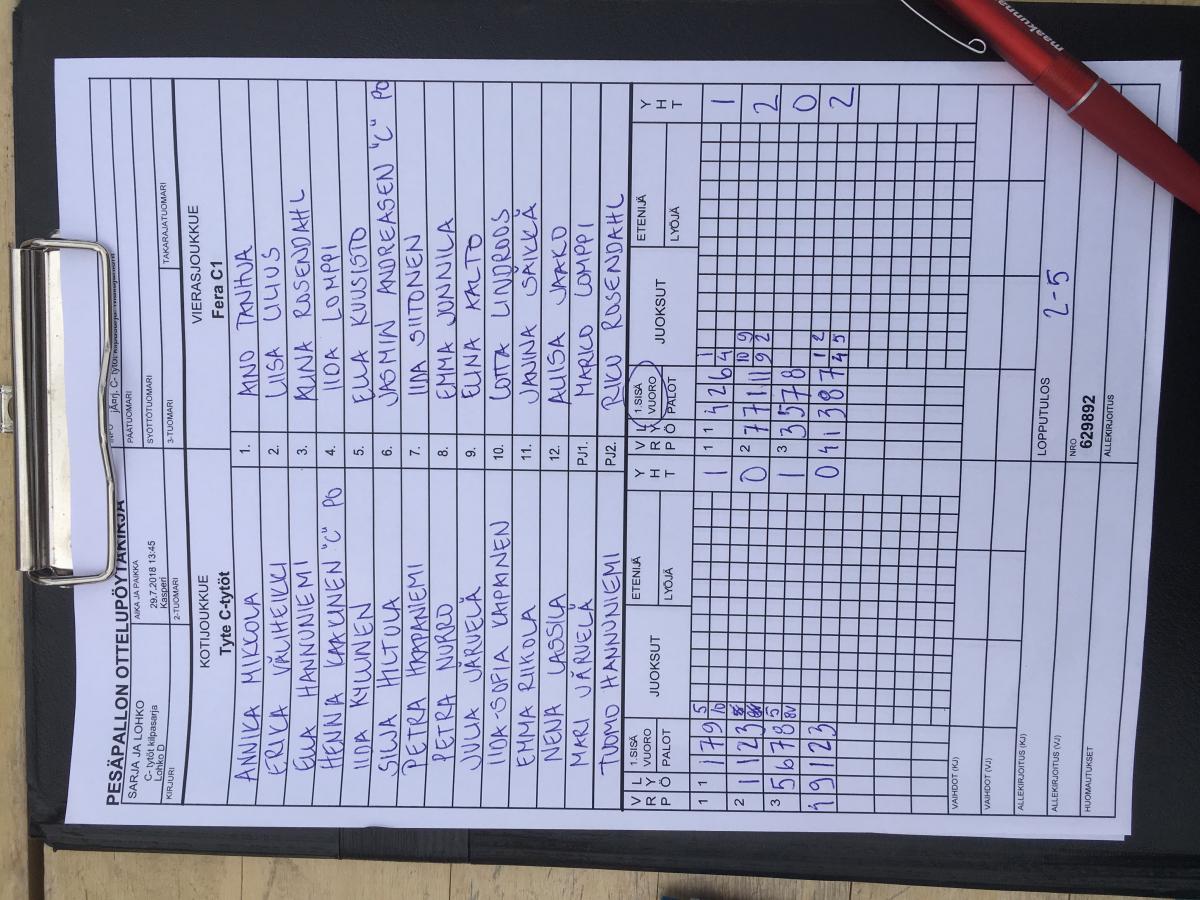 PESÄPALLON OTTELUPÖYTÄKIRJA
SARJA JA LOHKO
C- tytöt kilpasarja
Lohko D
AIKA JA PAIKKA
29.7.2018 13:45
Kasperi
PÄÄTUOMARI
SYÖTTÖTUOMARI
KIRJURI
2-TUOMARI
3-TUOMARI
TAKARAJATUOMARI
KOTIJOUKKUE
Tyte C-tytöt
VIERASJOUKKUE
Fera C1
ANNIKA MIKKOLA 1. AINO TANHUA
ERIKA VÄLIHEIKKI 2. LIISA LILIUS
ELLA HANNUNIEMI 3. ALINA ROSENDAHL
HENNA LAAKUNEN "C" PO 4. IIDA LOMPPI
IIDA KYLLINEN 5. ELLA KUUSISTO
SILJA HILTULA 6. JASMIN ANDREASEN "C" PO
PETRA HAAPANIEMI 7. IIDA SIITONEN
PETRA NURRO 8. EMMA JUNNILA
JULIA JÄRVELÄ 9. ELINA AALTO
IIDA-SOFIA KAIPAINEN 10. LOTTA LINDROOS
EMMA RIIKOLA 11. JANINA SÄIKKÄ
NENA LASSILA 12. ALIISA JAAKO
MARI JÄRVELÄ PJ1. MARKO LOMPPI
TUOMO HANNUNIEMI PJ2. RIKU ROSENDAHL
VRP LYÖ 1.SISÄ VUORO PALOT JUOKSUT ETENIJÄ LYÖJÄ YHT VRP LYÖ 1.SISÄ VUORO PALOT JUOKSUT ETENIJÄ LYÖJÄ YHT
1 1 1 7 9 5 10 1 1 1 4 2 6 1 4 1
2 1 1 2 3 0 2 7 7 1 11 10 9 9 2 2
3 5 6 7 8 5 8V 1 3 3 5 7 8 0
4 9 1 2 3 0 4 1 3 8 7 1 2 4 5 2
VAIHDOT (KJ)
VAIHDOT (VJ)
ALLEKIRJOITUS (KJ)
LOPPUTULOS 2-5
ALLEKIRJOITUS (VJ)
NRO
629892
HUOMAUTUKSET
ALLEKIRJOITUS
maakunna